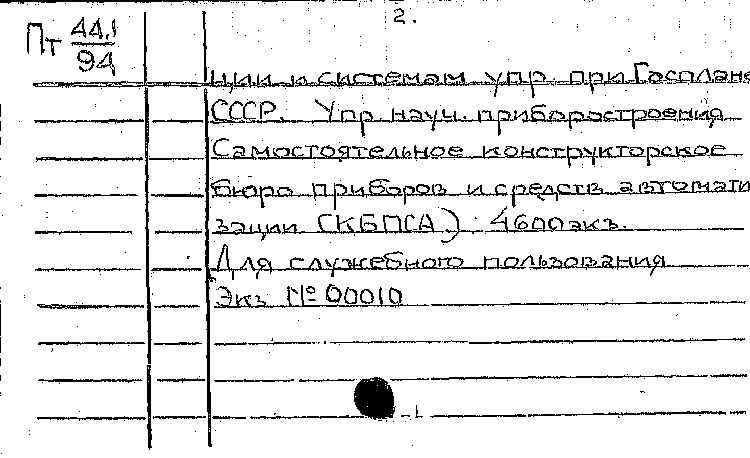 2.
Пт 44.1
94
ции и системам упр. при Госплане
СССР. Упр. науч. приборостроения
Самостоятельное конструкторское
бюро приборов и средств автомати
зации (СКБПСА). 4600 экз.
Для служебного пользования
Экз № 00010